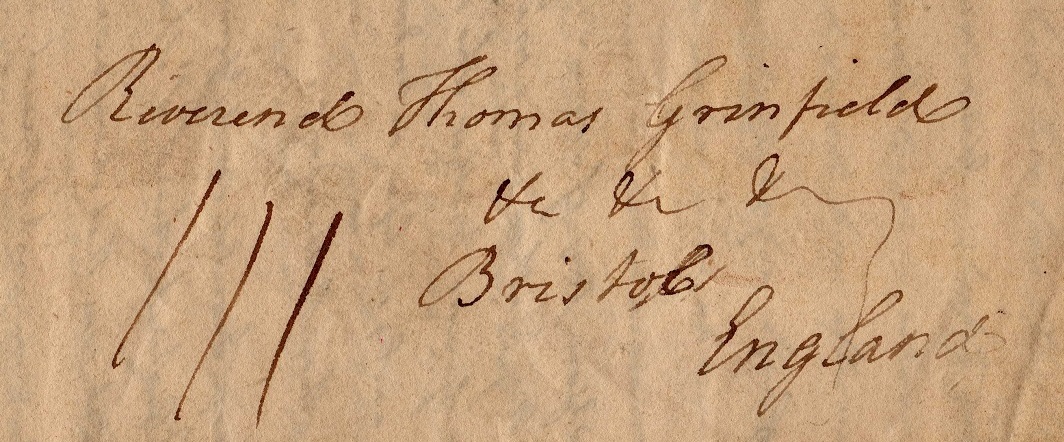 Reverend Thomas Grinfield
&c &c &c
Bristol
England